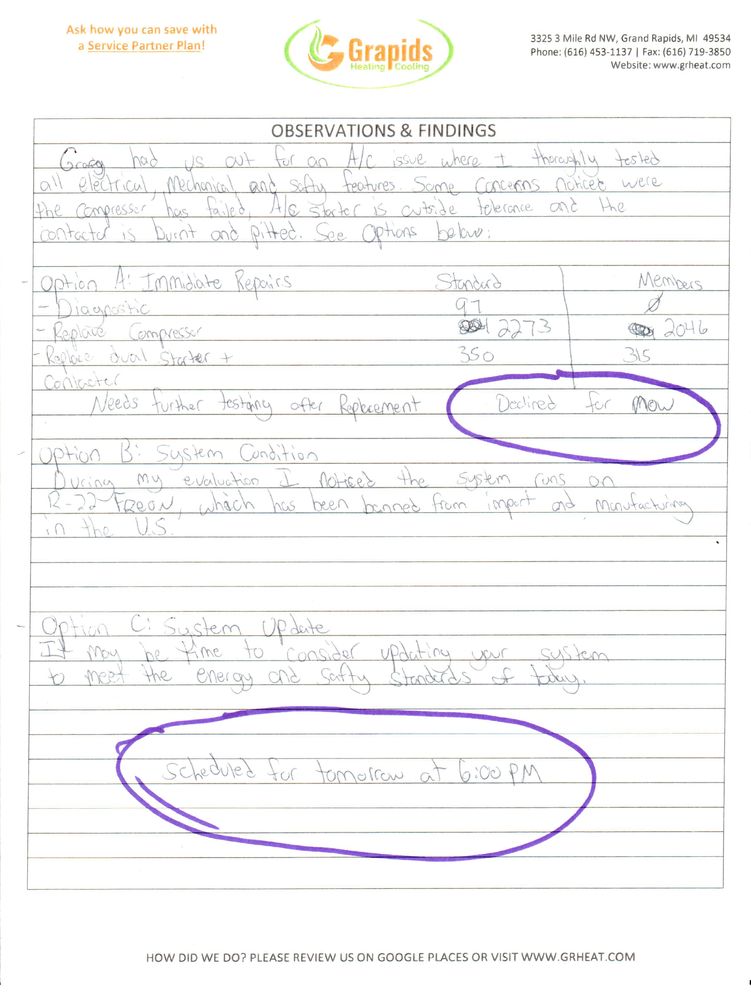 Ask how you can save with
a Service Partner Plan!
Grapids
Heating Cooling
3325 3 Mile Rd NW, Grand Rapids, MI 49534
Phone: (616) 453-1137 | Fax: (616) 719-3850
Website: www.grheat.com
OBSERVATIONS & FINDINGS
had us out for an A/c issue where I thoroughly tested
all electrical, Mechanical and safty features. Some concerns noticed were
the compressor has failed, A/c starter is outside tolerance and the
contactor is burnt and pitted. See Options below:
- Option A: Immidiate Repairs Standard Members
- Diagnostic 97 Ø
- Replace Compressor 2273 2046
- Replace dual Starter + 350 315
Contactor
Needs further testing after Replacement Declined for Now
- Option B: System Condition
During my evaluation I noticed the system runs on
R-22 FREON, which has been banned from import and manufacturing
in the U.S.
- Option C: System Update
It may be time to consider updating your system
to meet the energy and safty standards of today.
Scheduled for tomorrow at 6:00 PM
HOW DID WE DO? PLEASE REVIEW US ON GOOGLE PLACES OR VISIT WWW.GRHEAT.COM